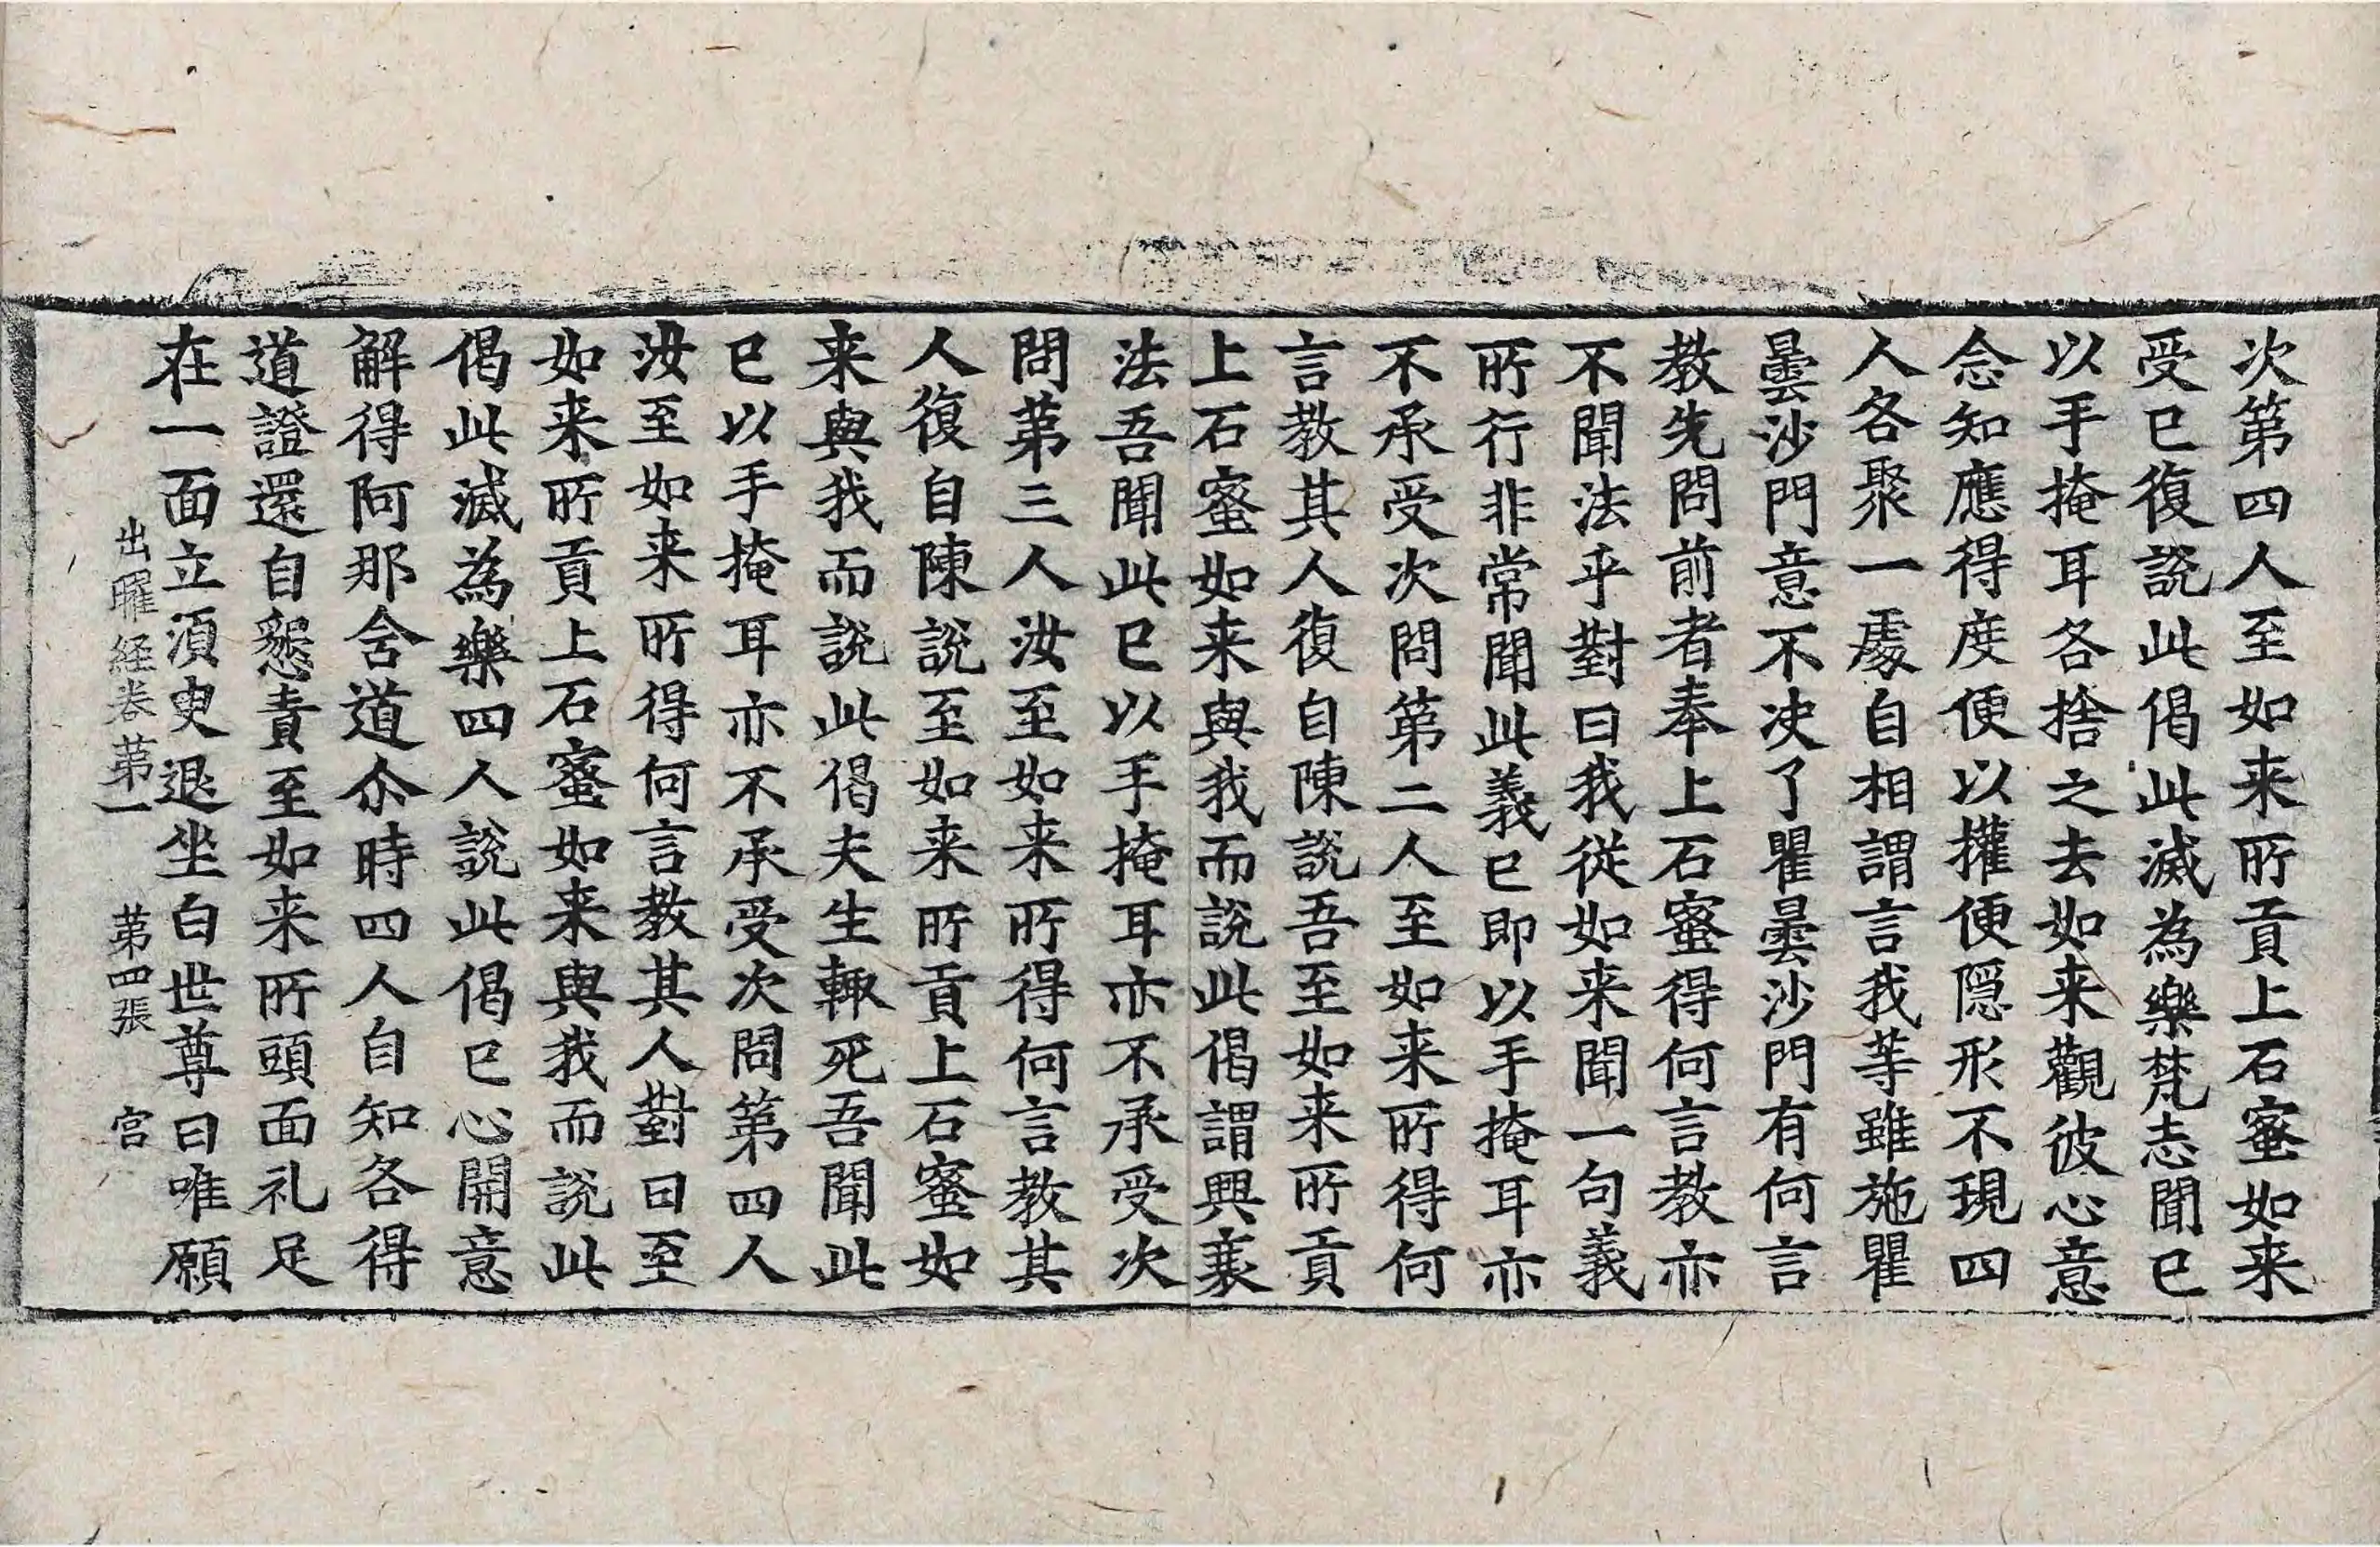 次第四人至如来所貢上石蜜如来
受已復說此偈此滅為樂梵志聞已
以手掩耳各捨之去如来觀彼心意
念知應得度便以權便隱形不現四
人各聚一處自相謂言我等雖施瞿
曇沙門意不决了瞿曇沙門有何言
教先問前者奉上石蜜得何言教亦
不聞法乎對曰我從如来聞一句義
所行非常聞此義已即以手掩耳亦
不承受次問第二人至如来所得何
言教其人復自陳說吾至如来所貢
上石蜜如来與我而說此偈謂興衰
法吾聞此已以手掩耳亦不承受次
問第三人汝至如来所得何言教其
人復自陳說至如来所貢上石蜜如
来與我而說此偈夫生輙死吾聞此
已以手掩耳亦不承受次問第四人
汝至如来所得何言教其人對曰至
如来所貢上石蜜如来與我而說此
偈此滅為樂四人說此偈已心開意
解得阿那含道尒時四人自知各得
道證還自愬責至如来所頭面礼足
在一面立湏臾退坐白世尊曰唯願
出曜経卷第一　第四張　宮